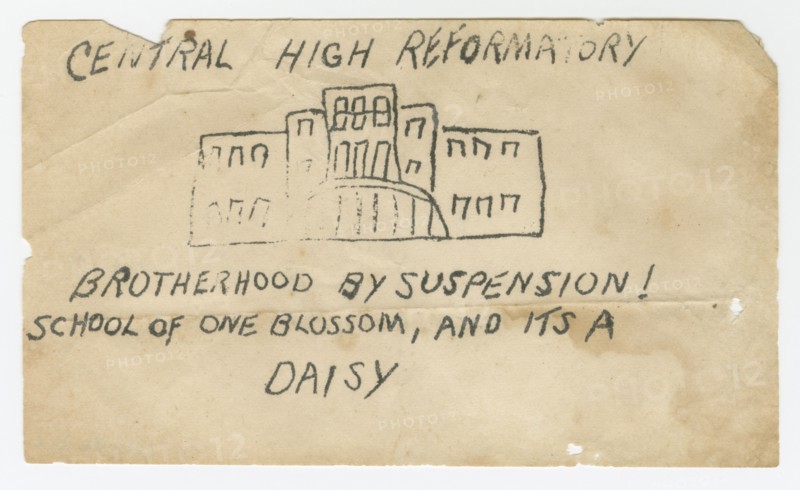 CENTRAL HIGH REFORMATORY
BROTHERHOOD BY SUSPENSION!
SCHOOL OF ONE BLOSSOM, AND ITS A
DAISY
PHOTO12